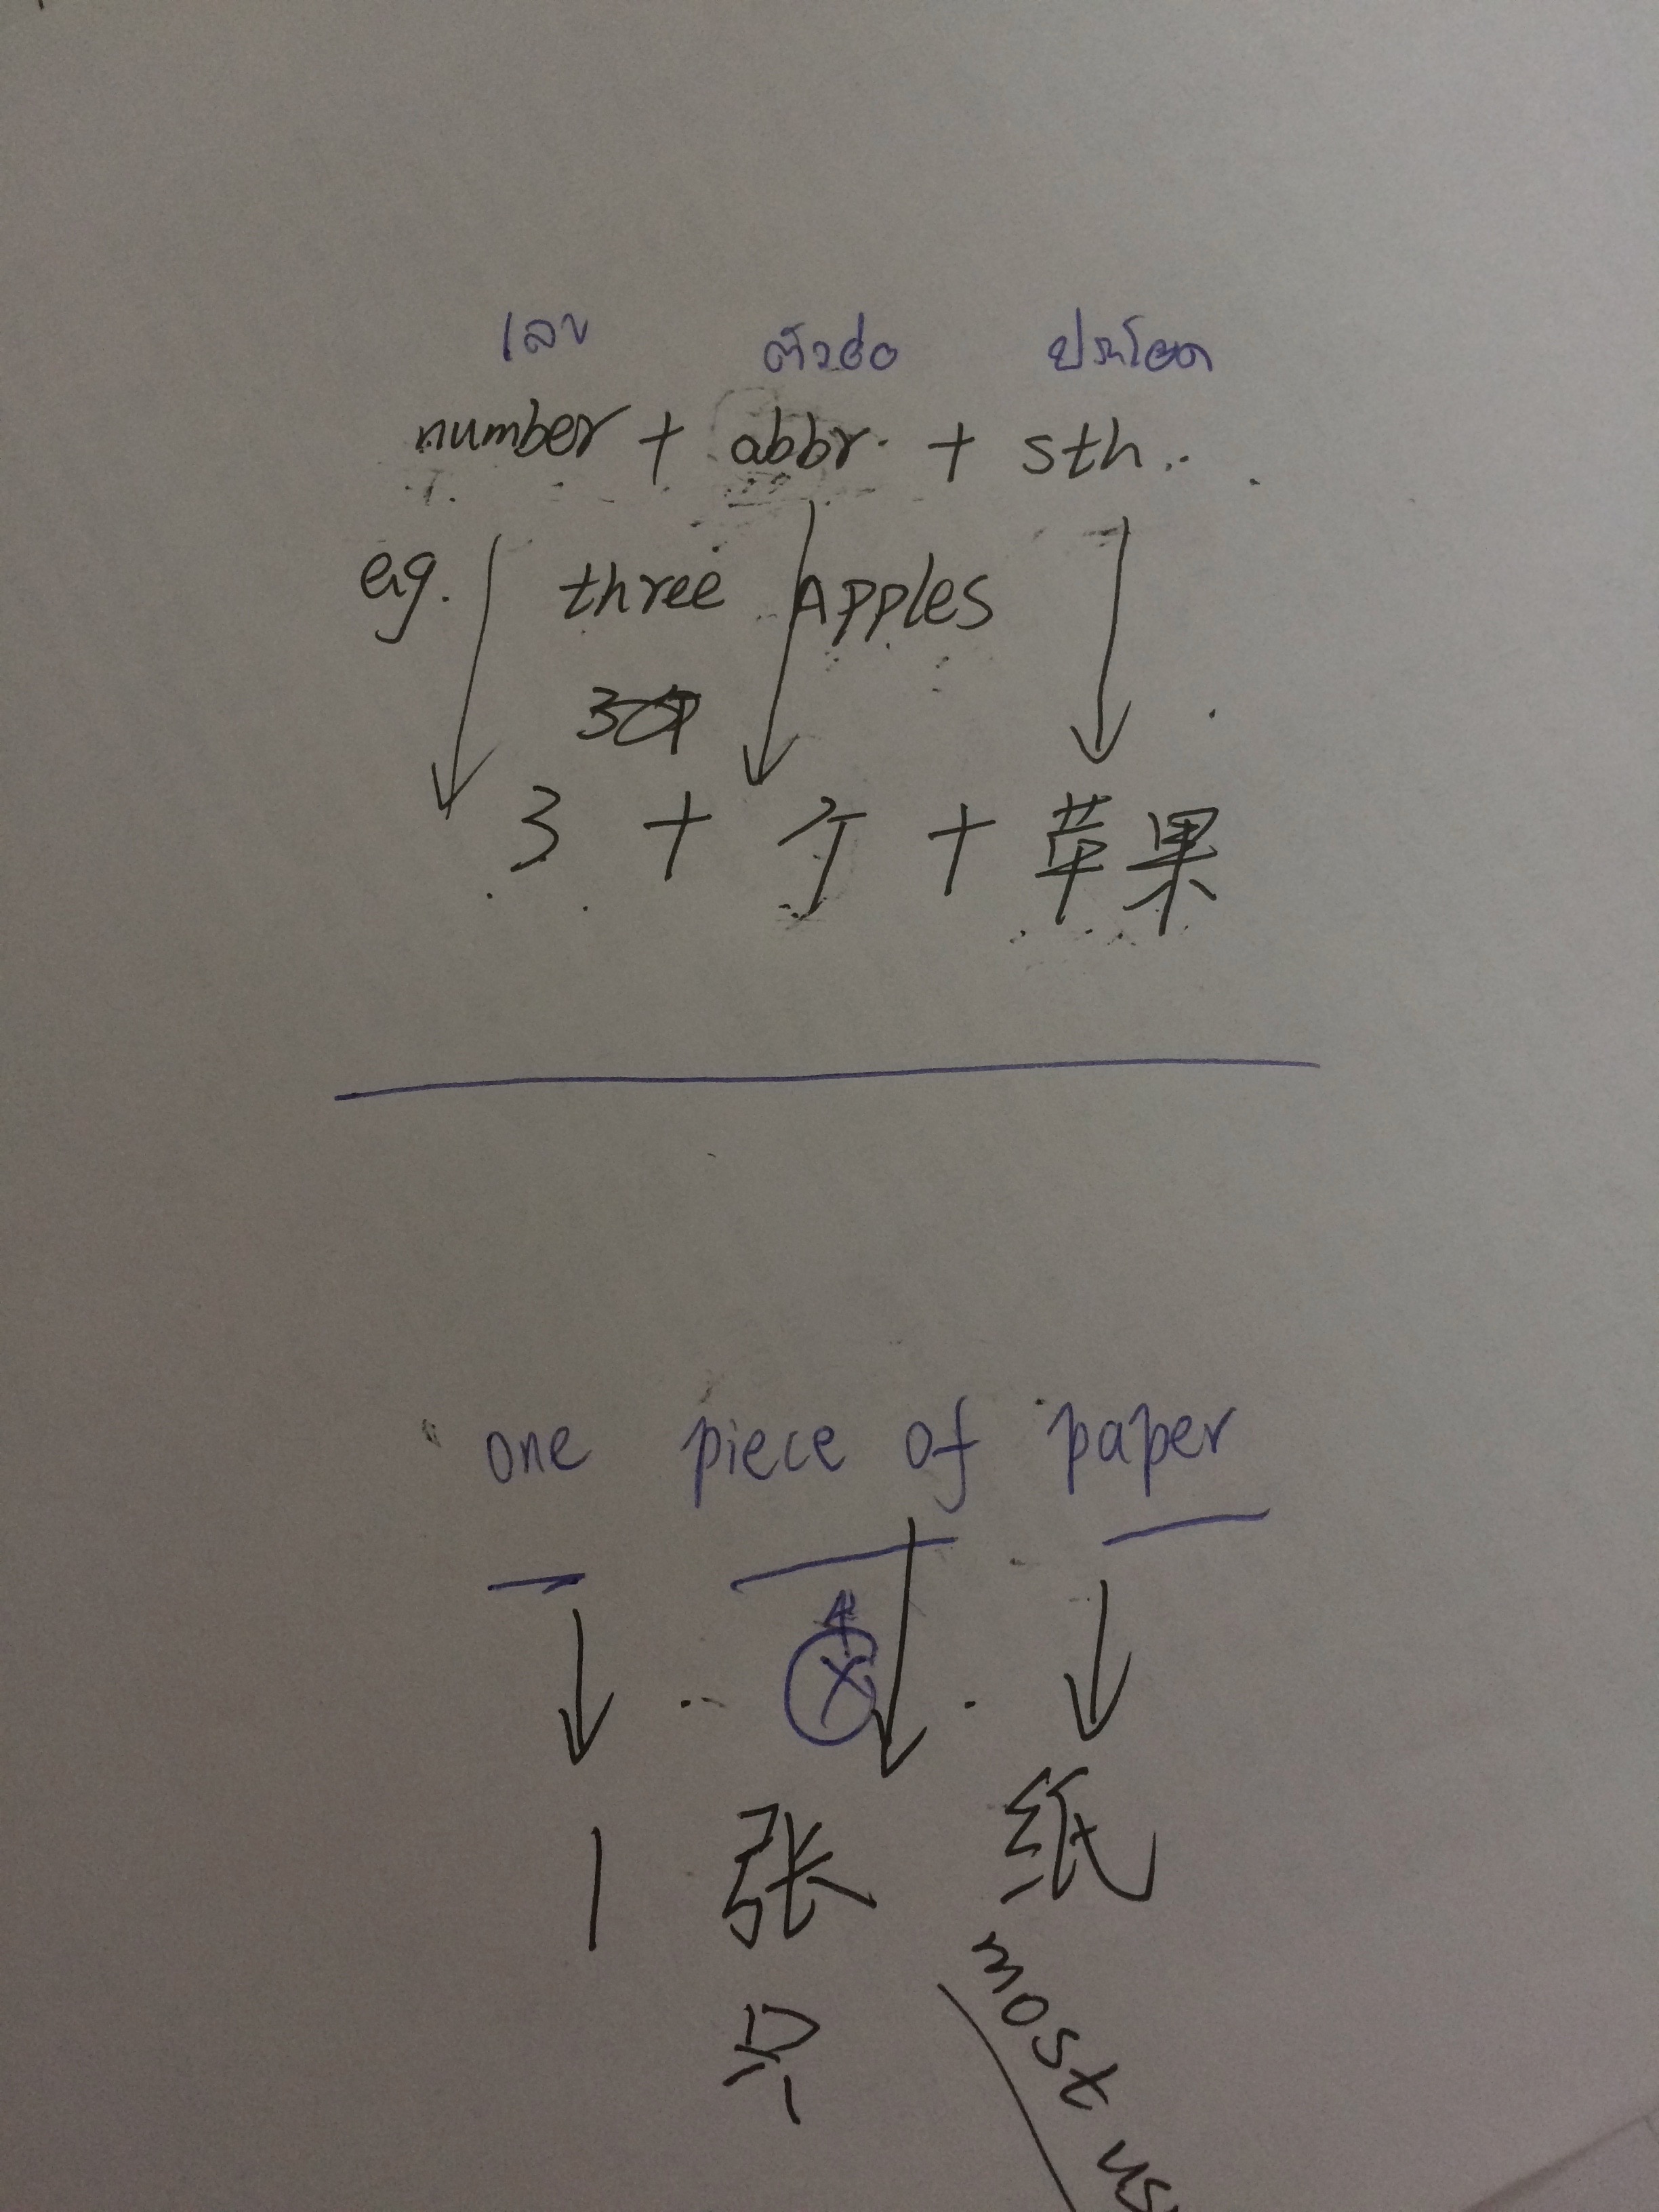 เลข ตัวย่อ ประโยค
number + abbr. + sth.
eg. three Apples
3 + 个 + 苹果
one piece of paper
X
1 张 纸
只
most